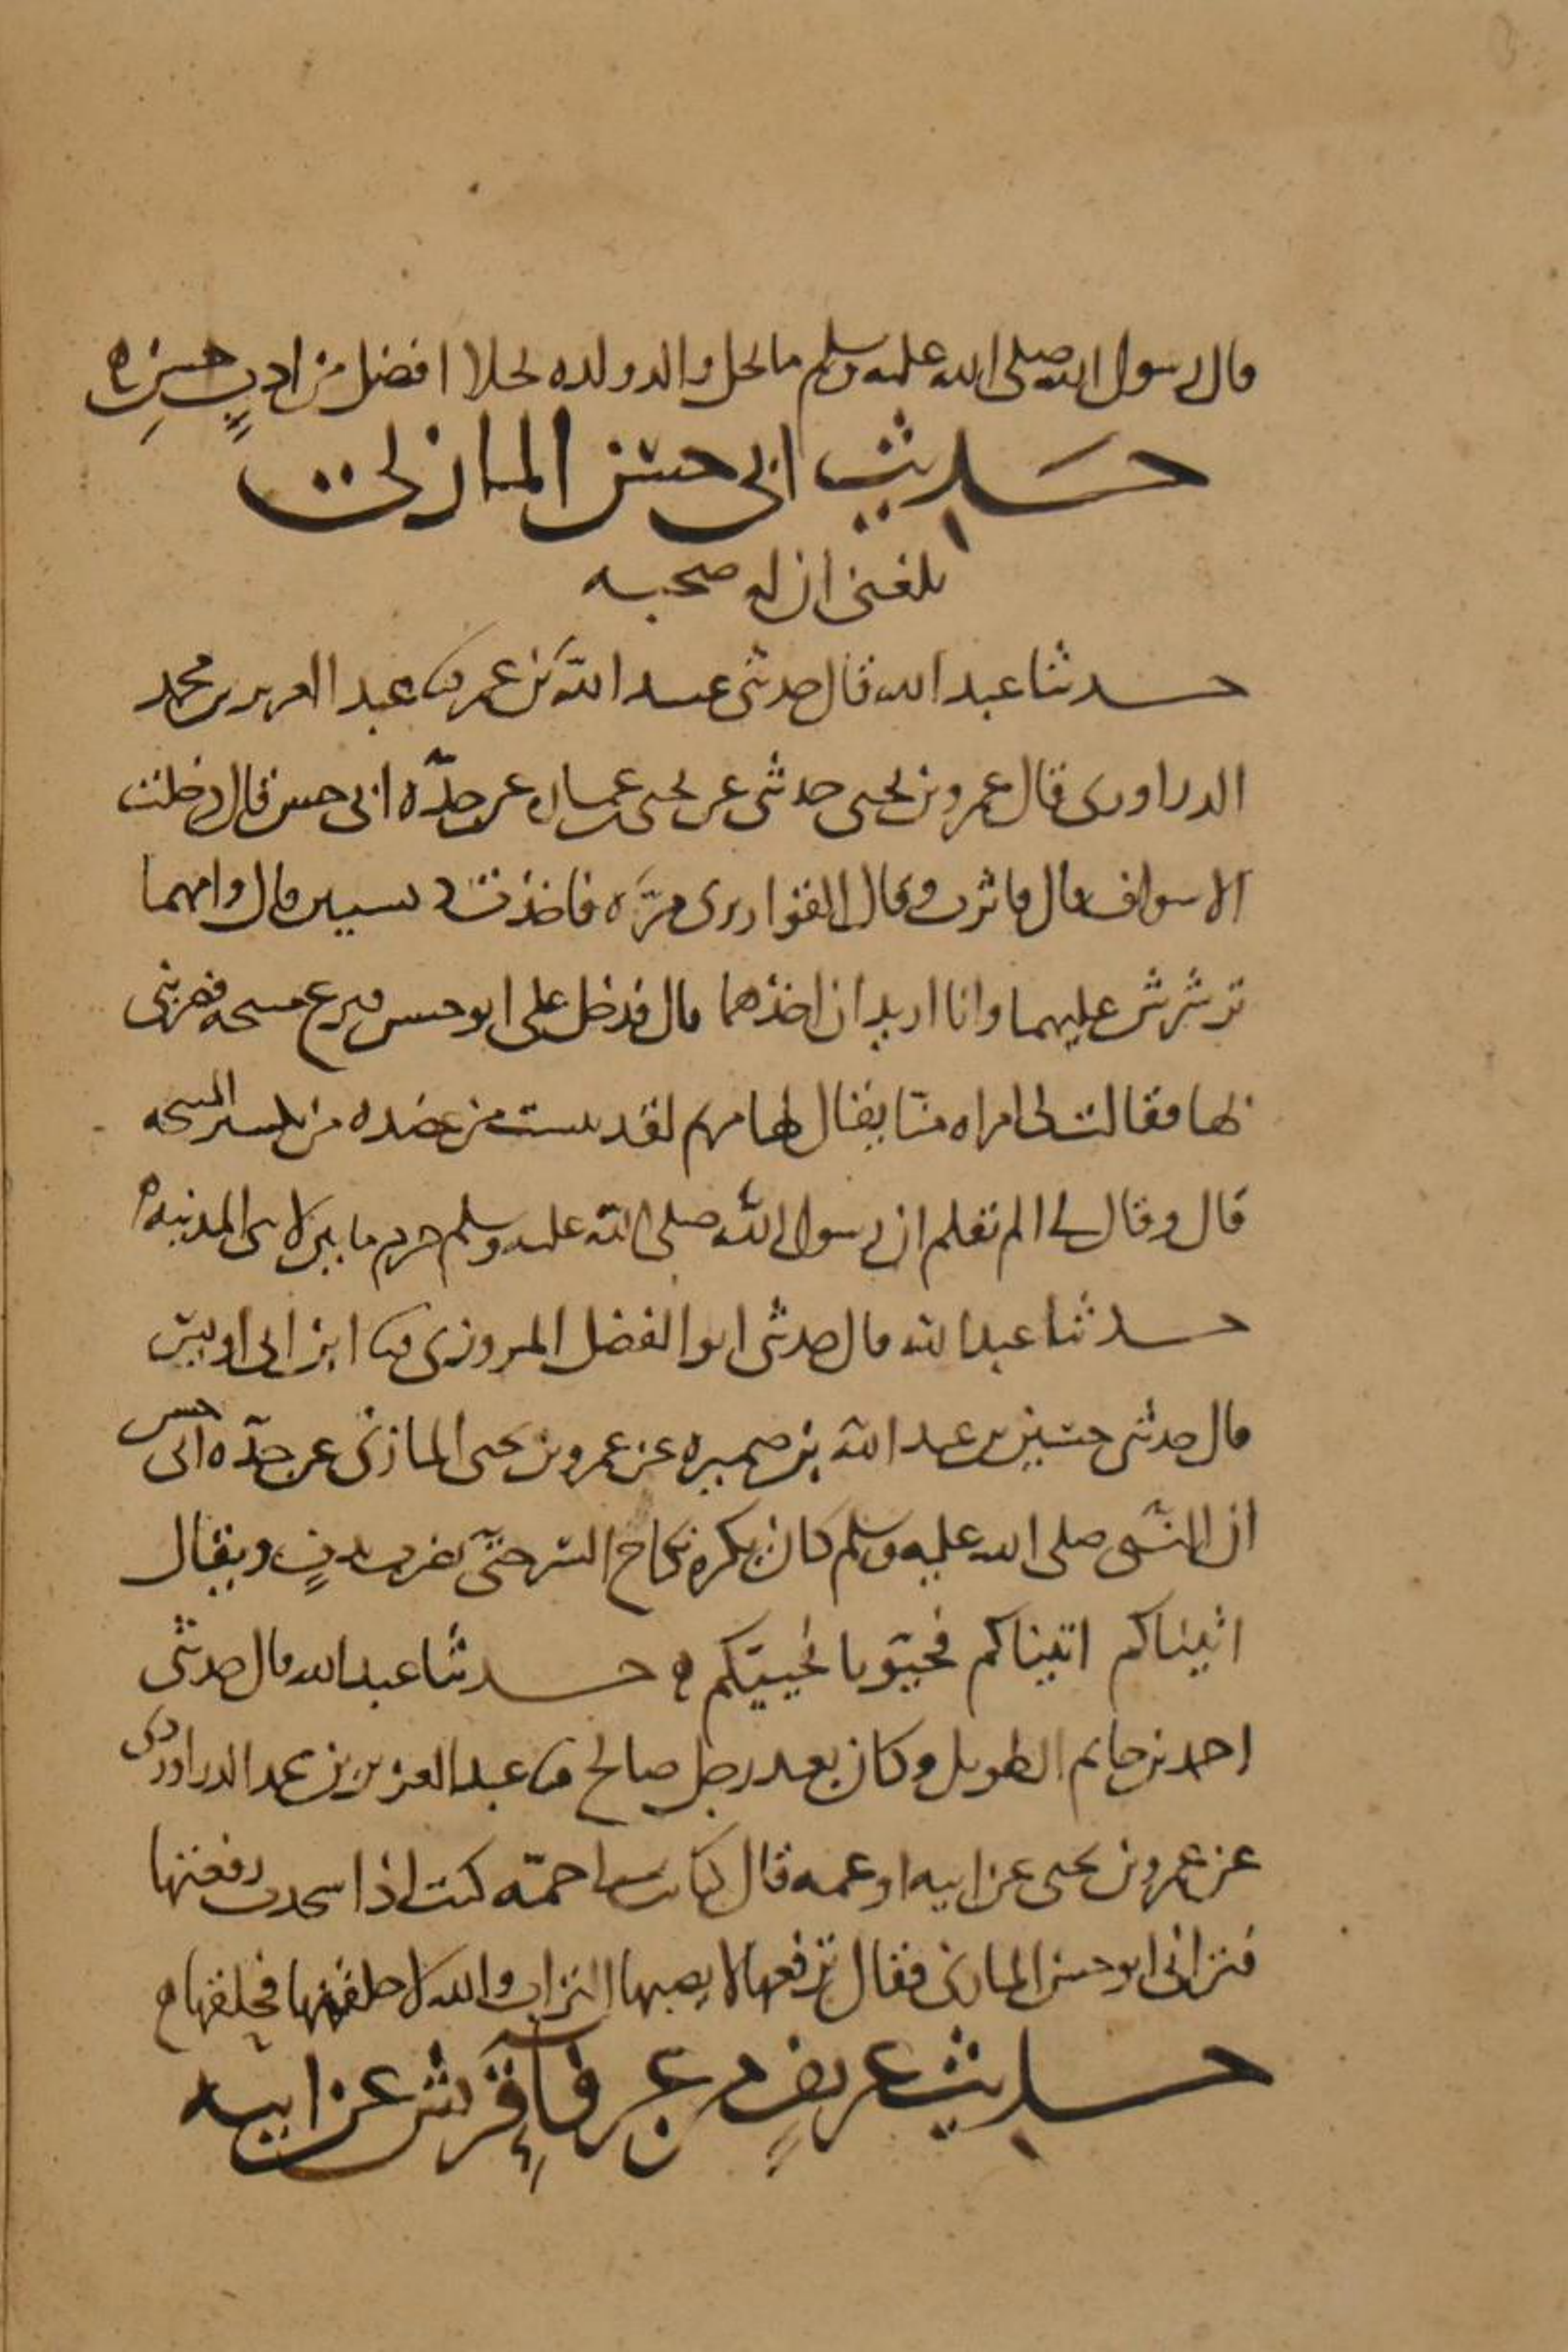 قال رسول الله صلى الله عليه وسلم ما نحل والد ولده نحلا افضل من ادبٍ حسنٍ
حَديث ابي حسن المازني
بلغني ان له صحبه
حدثنا عبد الله قال حدثني عبيد الله بن عمر ثنا عبد العزيز بن محمد
الدراوردي قال عمرو بن يحيى حدثني عن يحيى بن عماره عن جدّه ابي حسن قال دخلت
الاسواف قال فاثرت وقال القواريري مرّه فاخذت دبسيين قال وامهما
ترشرش عليهما وانا اريد ان اخذهما قال فدخل علي ابو حسن فنزع متيحه فضربني
بها فقالت لي امراه منّا يقال لها مريم لقد تعست من عضده من تكسير المتيحه
قال وقال لي الم تعلم ان رسول الله صلى الله عليه وسلم حرم ما بين لابتي المدينه
حدثنا عبد الله قال حدثني ابو الفضل المروزي ثنا ابن ابي اويس
قال حدثني حسين بن عبد الله بن ضميره عن عمرو بن يحيى المازني عن جدّه ابي حسن
ان النبي صلى الله عليه وسلم كان يكره نكاح السر حتى يضرب بدفٍ ويقال
اتيناكم اتيناكم فحيّونا نحييكم حدثنا عبد الله قال حدثني
احمد بن حاتم الطويل وكان يعد رجل صالح ثنا عبد العزيز بن محمد الدراوردي
عن عمرو بن يحيى عن ابيه او عمه قال كانت لي جمّه كنت اذا سجدت رفعتها
فراني ابو حسن المازني فقال ترفعها لا يصيبها التراب والله لاحلقنها فحلقها
حديث عريفٍ من عرفآءِ قريش عن ابيه